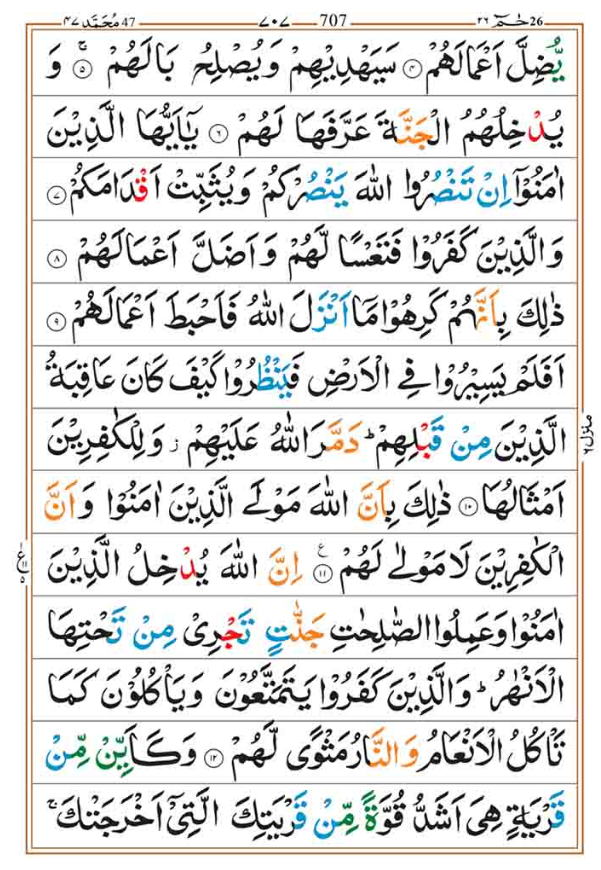 مُحَمَّد ٤٧ 47 ٧٠٧ 707 حٰمٓ ٢٦ 26
يُّضِلَّ اَعْمَالَهُمْ ۝٤ سَيَهْدِيْهِمْ وَيُصْلِحُ بَالَهُمْ ۝٥ۚ وَ
يُدْخِلُهُمُ الْجَنَّةَ عَرَّفَهَا لَهُمْ ۝٦ يٰٓاَيُّهَا الَّذِيْنَ
اٰمَنُوْٓا اِنْ تَنْصُرُوا اللّٰهَ يَنْصُرْكُمْ وَيُثَبِّتْ اَقْدَامَكُمْ ۝٧
وَالَّذِيْنَ كَفَرُوْا فَتَعْسًا لَّهُمْ وَاَضَلَّ اَعْمَالَهُمْ ۝٨
ذٰلِكَ بِاَنَّهُمْ كَرِهُوْا مَآ اَنْزَلَ اللّٰهُ فَاَحْبَطَ اَعْمَالَهُمْ ۝٩
اَفَلَمْ يَسِيْرُوْا فِي الْاَرْضِ فَيَنْظُرُوْا كَيْفَ كَانَ عَاقِبَةُ
الَّذِيْنَ مِنْ قَبْلِهِمْ ؕ دَمَّرَ اللّٰهُ عَلَيْهِمْ ز وَلِلْكٰفِرِيْنَ
اَمْثَالُهَا ۝١٠ ذٰلِكَ بِاَنَّ اللّٰهَ مَوْلَى الَّذِيْنَ اٰمَنُوْا وَاَنَّ
الْكٰفِرِيْنَ لَا مَوْلٰى لَهُمْ ۝١١ ع اِنَّ اللّٰهَ يُدْخِلُ الَّذِيْنَ
اٰمَنُوْا وَعَمِلُوا الصّٰلِحٰتِ جَنّٰتٍ تَجْرِيْ مِنْ تَحْتِهَا
الْاَنْهٰرُ ؕ وَالَّذِيْنَ كَفَرُوْا يَتَمَتَّعُوْنَ وَيَاْكُلُوْنَ كَمَا
تَاْكُلُ الْاَنْعَامُ وَالنَّارُ مَثْوًى لَّهُمْ ۝١٢ وَكَاَيِّنْ مِّنْ
قَرْيَةٍ هِيَ اَشَدُّ قُوَّةً مِّنْ قَرْيَتِكَ الَّتِيْٓ اَخْرَجَتْكَ ۚ
منزل ٦